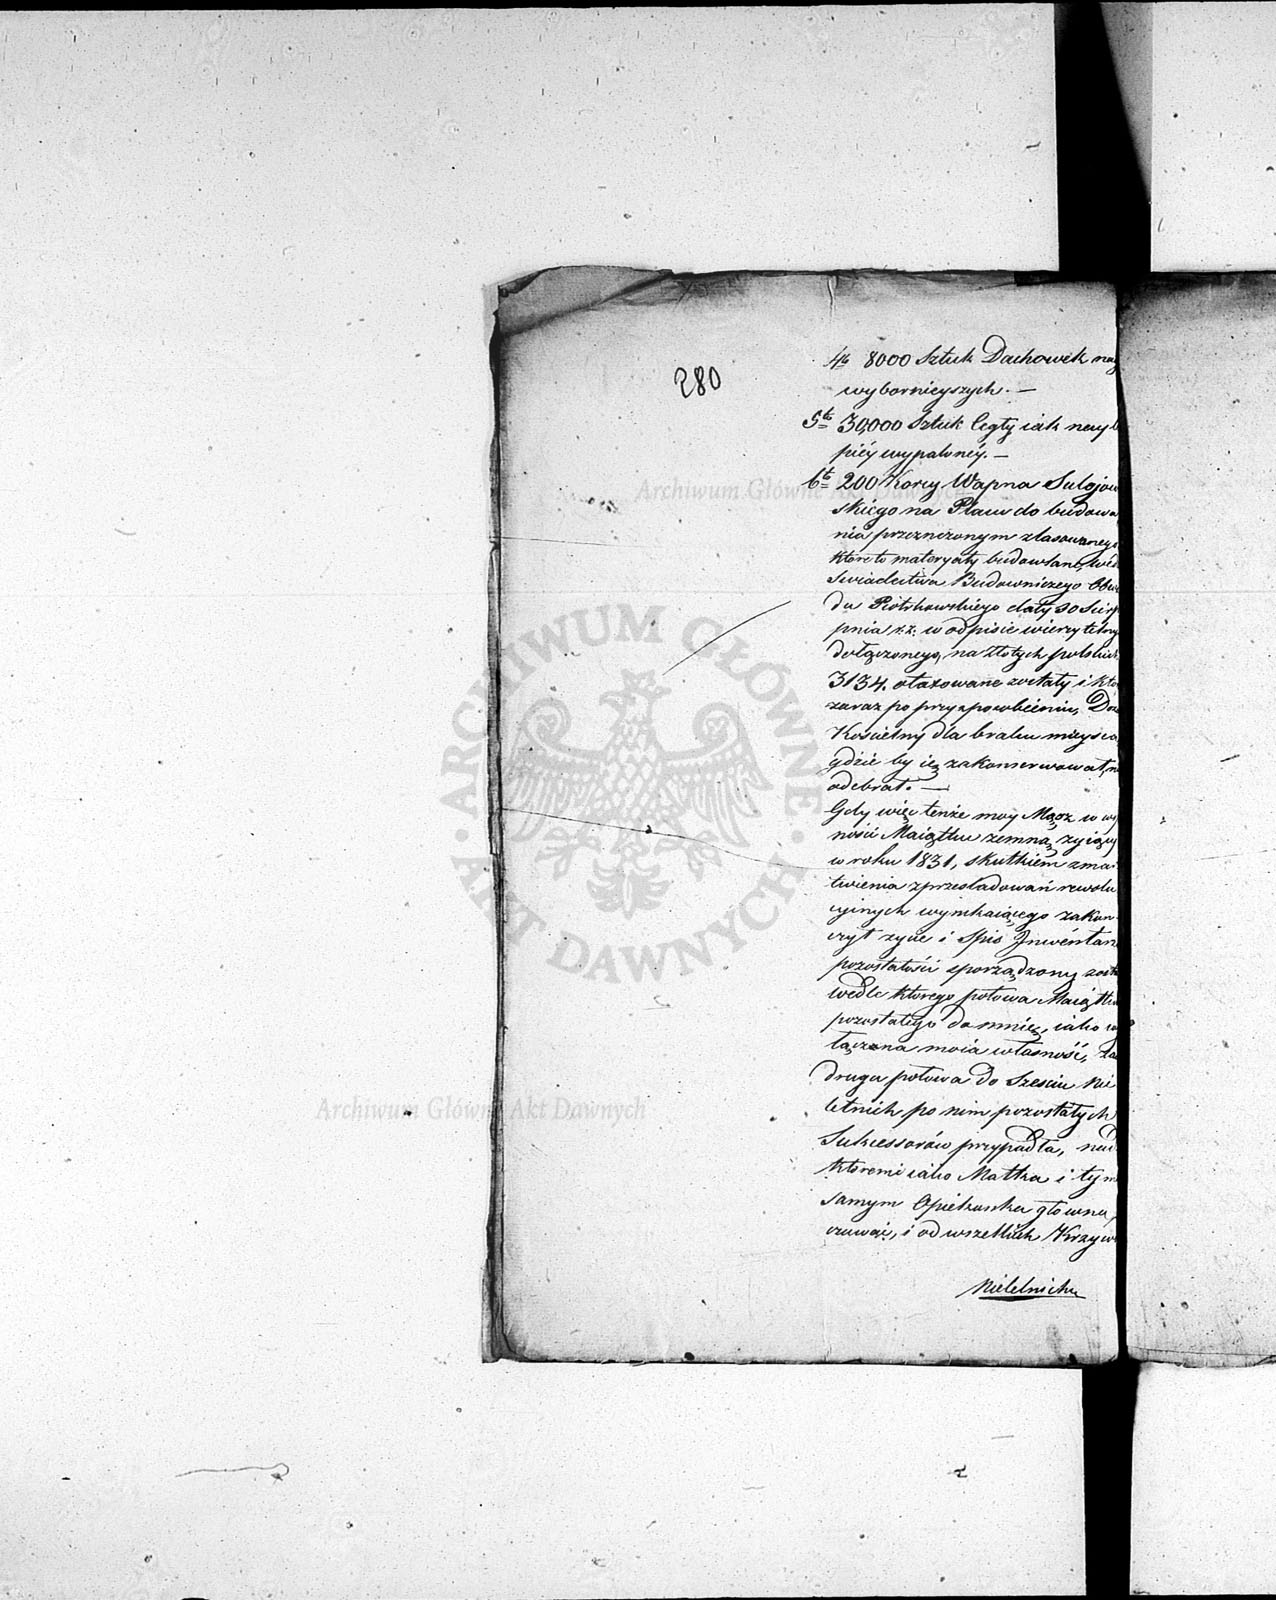 280
4to 8000 Sztuk Dachowek nay
wybornieyszych. —
5to 30,000 Sztuk Cegły iak nayle
piéy wypalonéy. —
6to 200 Korcy Wapna Sulejow
skiego na Placu do budowa
nia przeznczonym zlasowanego
które to materyały budowlane, wedł
Swiadectwa Budowniczego Obwo
du Piotrkowskiego daty 30 Sier
pnia r.z: w odpisie wierzytelny
dołączonego, na złotych polskich
3134. otaxowane zostały i któ
zaraz po przysposobieniu, Dozo
Kościelny dla braku mieysca,
gdzie by ię zakonserwował, n
odebrał. —
Gdy więc tenże moy Mąż w w
ności Maiątku zemną żyiący
w roku 1831, skutkiem zma
twienia z prześladowań rewolu
cyinych wynikaiącego zakon
czył życie i Spis Inwentarz
pozostałości sporządzony zost
wedle którego połowa Maiątku
pozostałego do mnie, iako wy
łączona moia własność, za
druga połowa do Sześciu Nie
letnich po nim pozostałych
Sukcessorów przypadła, nad
któremi iako Matka i tym
samym Opiekunka główna,
czuwać, i od wszelkich Krzyw
Nieletnich
Archiwum Główne Akt Dawnych
ARCHIWUM GŁÓWNE · AKT DAWNYCH ·
Archiwum Główne Akt Dawnych